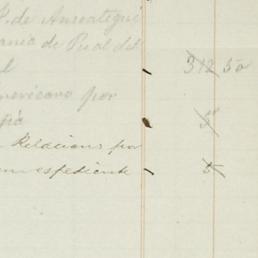 P. de Anzoategui
ania de Pual del
l 312 50
mericano por
pia 5
Relacions por
un espediente 5